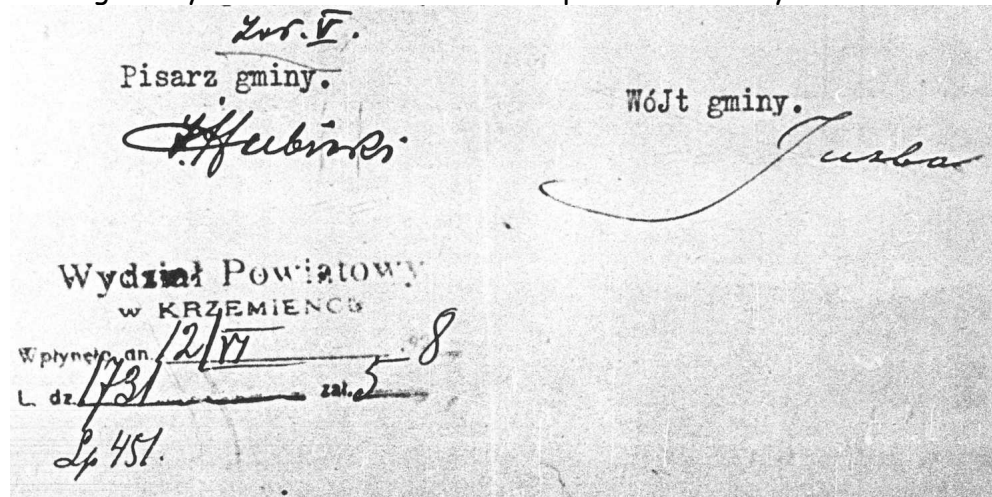 V.
Pisarz gminy.
WóJt gminy.
Juzba
Wydział Powiatowy
w KRZEMIEŃCU
Wpłynęło dn. 12/VI 8
L. dz. 1731 zał. 5
Lp 451.